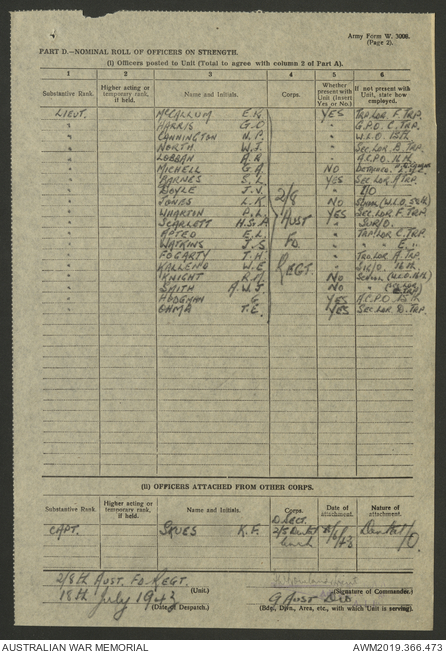 4
Army Form W. 3008.
(Page 2).
PART D.—NOMINAL ROLL OF OFFICERS ON STRENGTH.
(i) Officers posted to Unit (Total to agree with column 2 of Part A).
1 2 3 4 5 6
Substantive Rank. Higher acting or temporary rank, if held. Name and Initials. Corps. Whether present with Unit (Insert Yes or No.) If not present with Unit, state how employed.
LIEUT. McCALLUM E.K. YES TRP. LDR. F. TRP.
" HARRIS G.O. " G.P.O. C. TRP.
" CANNINGTON N.P. " W.L.O. 15th
" NORTH W.J. " SEC. LDR. B. TRP.
" LOBBAN A.R. " A.C.P.O. 16th
" MICHELL G.A. NO
" BARNES S.L. YES SEC. LDR. A TRP.
" BOYLE J.V. " I/O
" JONES L.K. NO SCHOOL (W.L.O. 58th)
" WHARTIN P.L. YES SEC. LDR. F. TRP.
" SCARLETT H.S.A. " SUR/O.
" APTED E.L. " TRP. LDR. C. TRP.
" WATKINS J.S. " " " E. "
" FOGARTY T.H. " TRP. LDR. A. TRP.
" W.E. " SIG/O. 16th
" KNIGHT R.A. NO SCHOOL (W.L.O. 16th)
" SMITH A.W.J. NO "
" HODGMAN G. YES A.C.P.O. 15th
" T.E. YES SEC. LDR. D. TRP.
2/8 AUST FD REGT.
(ii) OFFICERS ATTACHED FROM OTHER CORPS.
Substantive Rank. Higher acting or temporary rank, if held. Name and Initials. Corps. Date of attachment. Nature of attachment.
CAPT. K.F. 2/5 Dental /6/43 Dental/O
2/8th AUST. FD. REGT. (Unit.) (Signature of Commander.)
18th July 1943 (Date of Despatch.) 9 AUST DIV (Bdg., Divn., Area, etc., with which Unit is serving).
AUSTRALIAN WAR MEMORIAL AWM2019.366.473